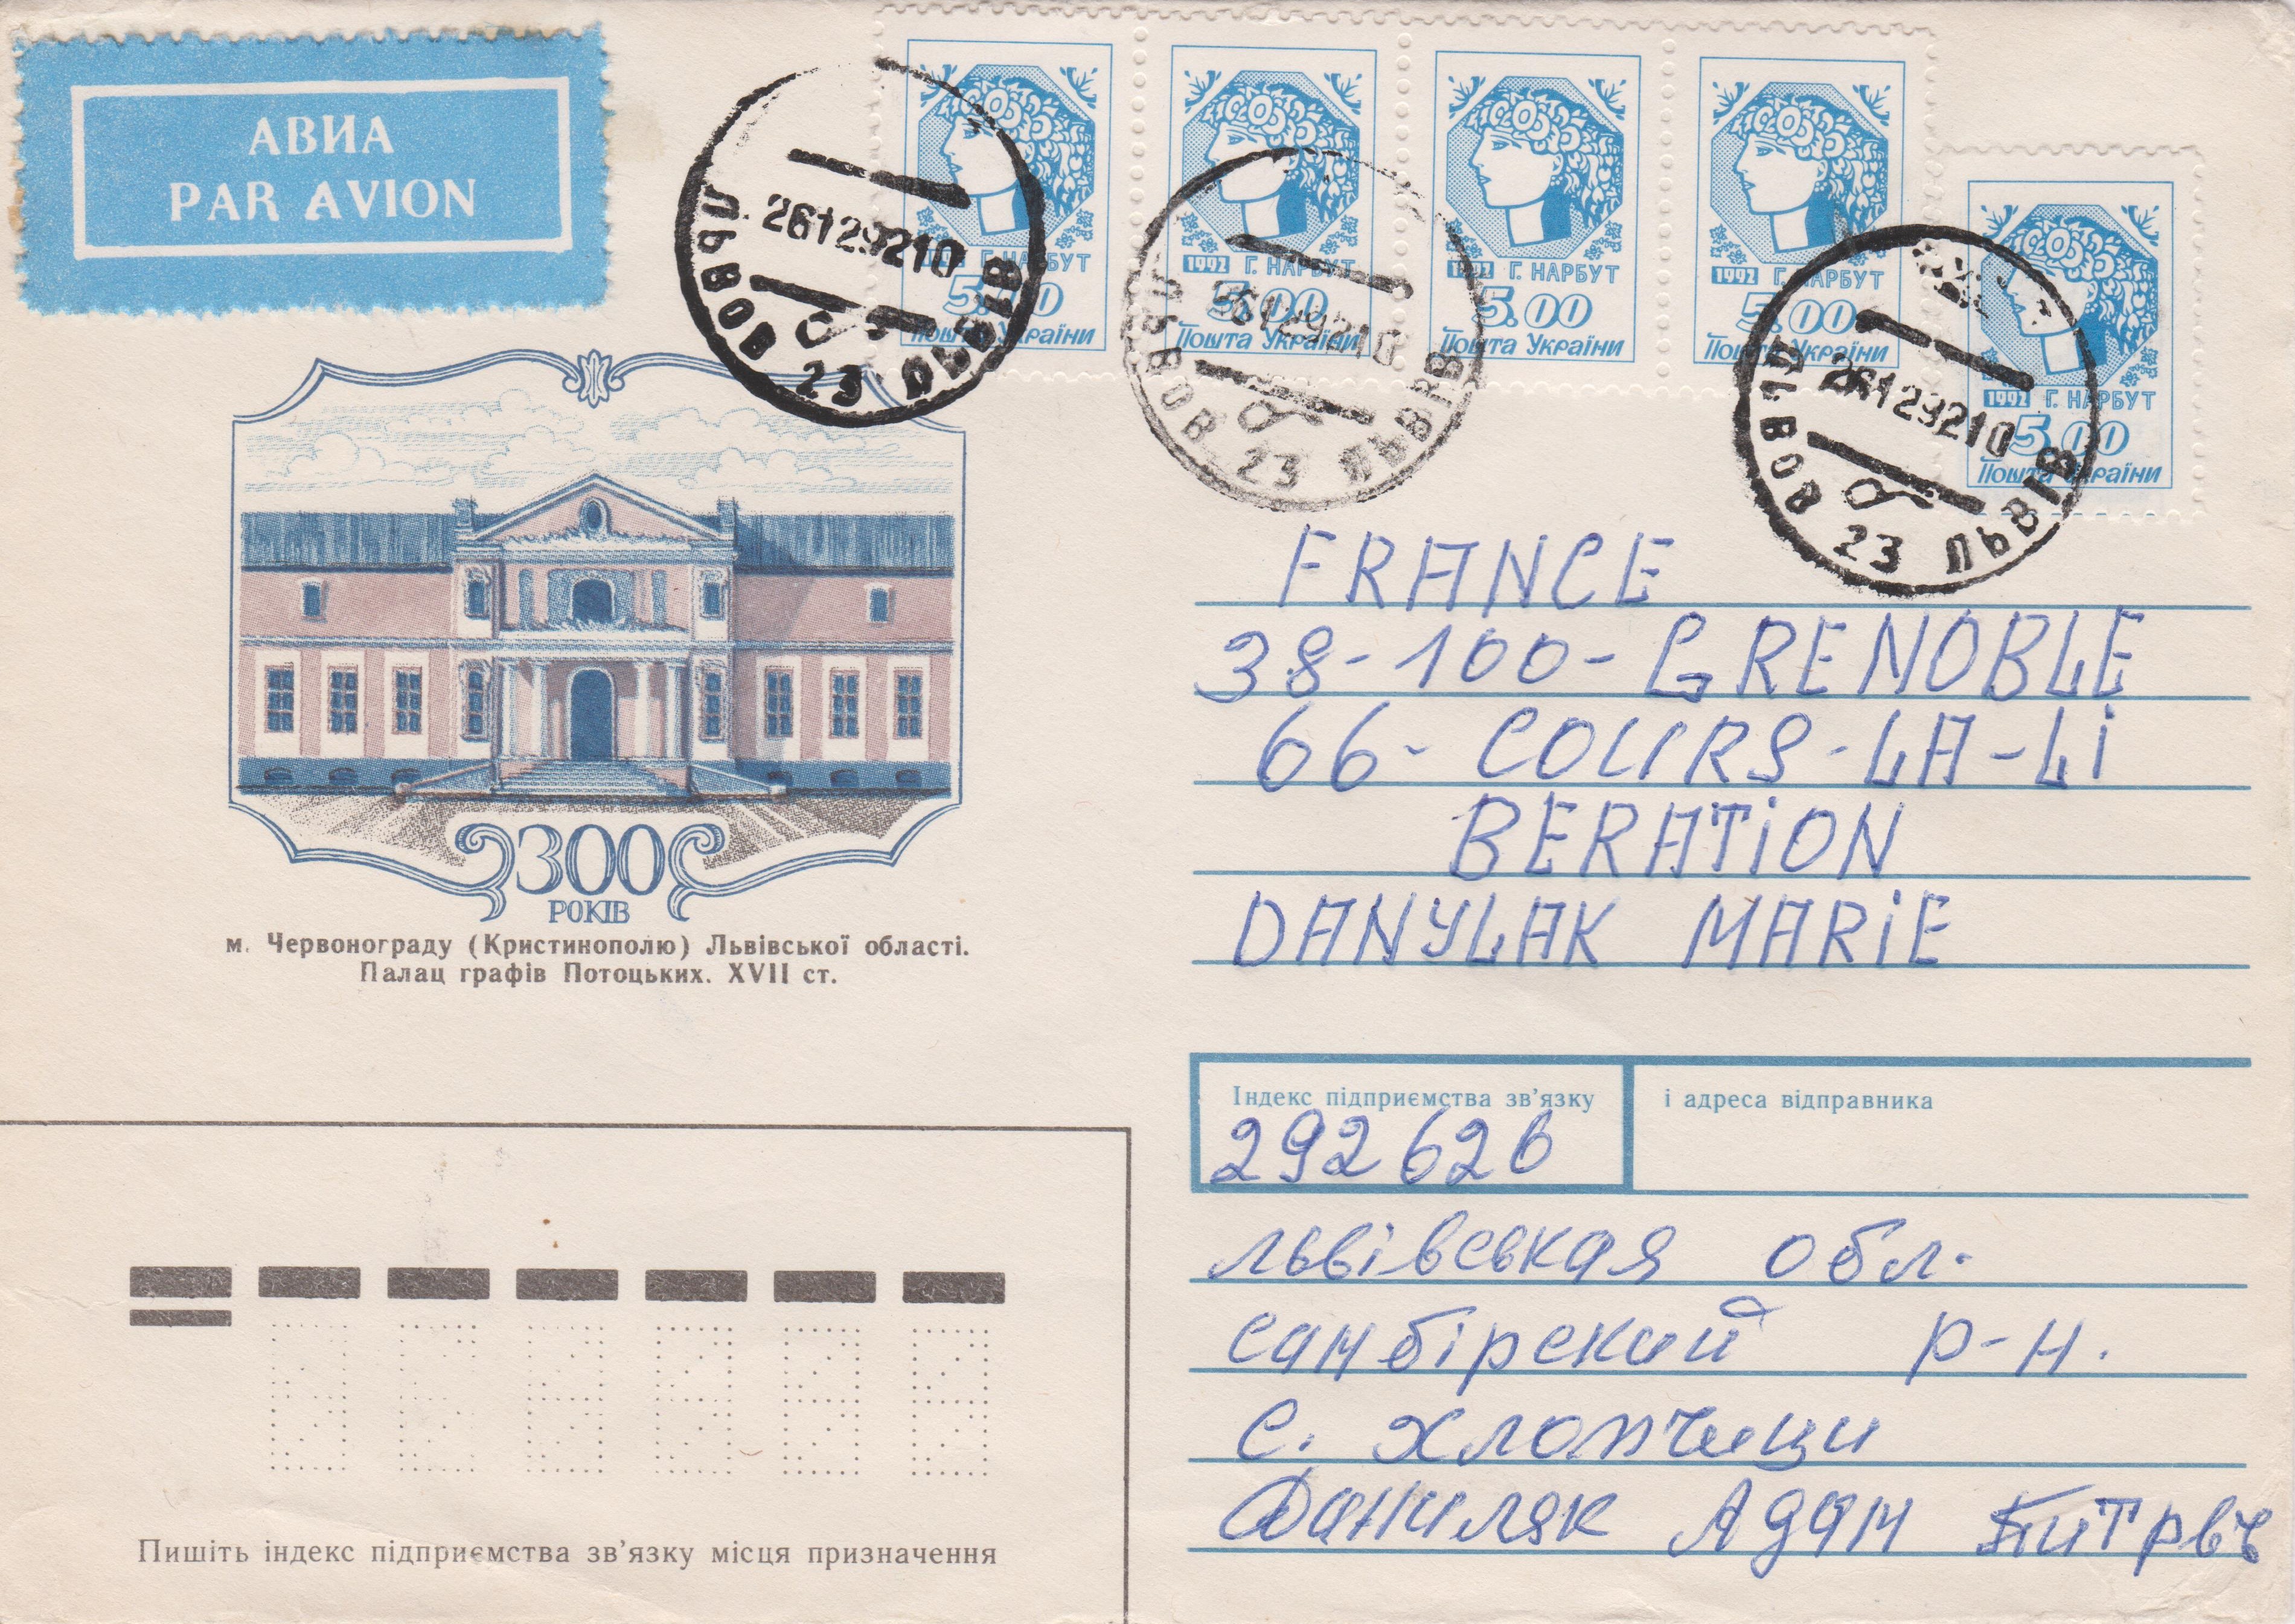 АВИА
PAR AVION
1992 Г. НАРБУТ
5.00
Пошта України
1992 Г. НАРБУТ
5.00
Пошта України
1992 Г. НАРБУТ
5.00
Пошта України
1992 Г. НАРБУТ
5.00
Пошта України
1992 Г. НАРБУТ
5.00
Пошта України
26129210
ЛЬВОВ 23 ЛЬВІВ
26129210
ЛЬВОВ 23 ЛЬВІВ
26129210
ЛЬВОВ 23 ЛЬВІВ
300
РОКІВ
м. Червонограду (Кристинополю) Львівської області.
Палац графів Потоцьких. XVII ст.
FRANCE
38-100-GRENOBLE
66- COURS-LA-Li
BERATiON
DANYLAK MARiE
Індекс підприємства зв'язку і адреса відправника
292626
львівская обл.
самбірский р-н.
с. хлопчици
Даниляк Адам
Пишіть індекс підприємства зв'язку місця призначення